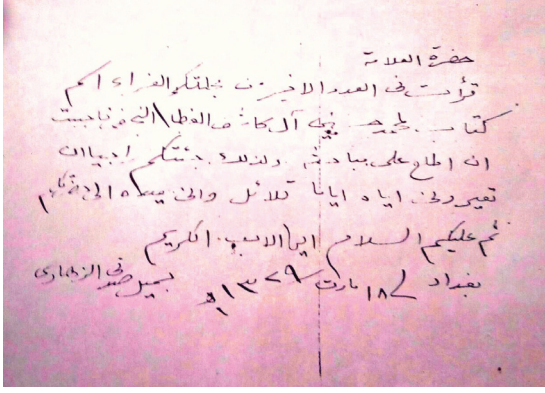 حضرة العلامة
قرأت في العدد الاخير من مجلتكم الغراء اسم
كتاب لمحمد آل كاشف الغطا النجفي فاحببت
ان اطلع على مباحثه ولذلك جئتكم راجيا ان
تعيروني اياه اياما قلائل واني معيده الى حضرتكم
ثم عليكم السلام ايها الاديب الكريم
بغداد ١٨ مارت ١٣٢٩ جميل صدقي الزهاوي